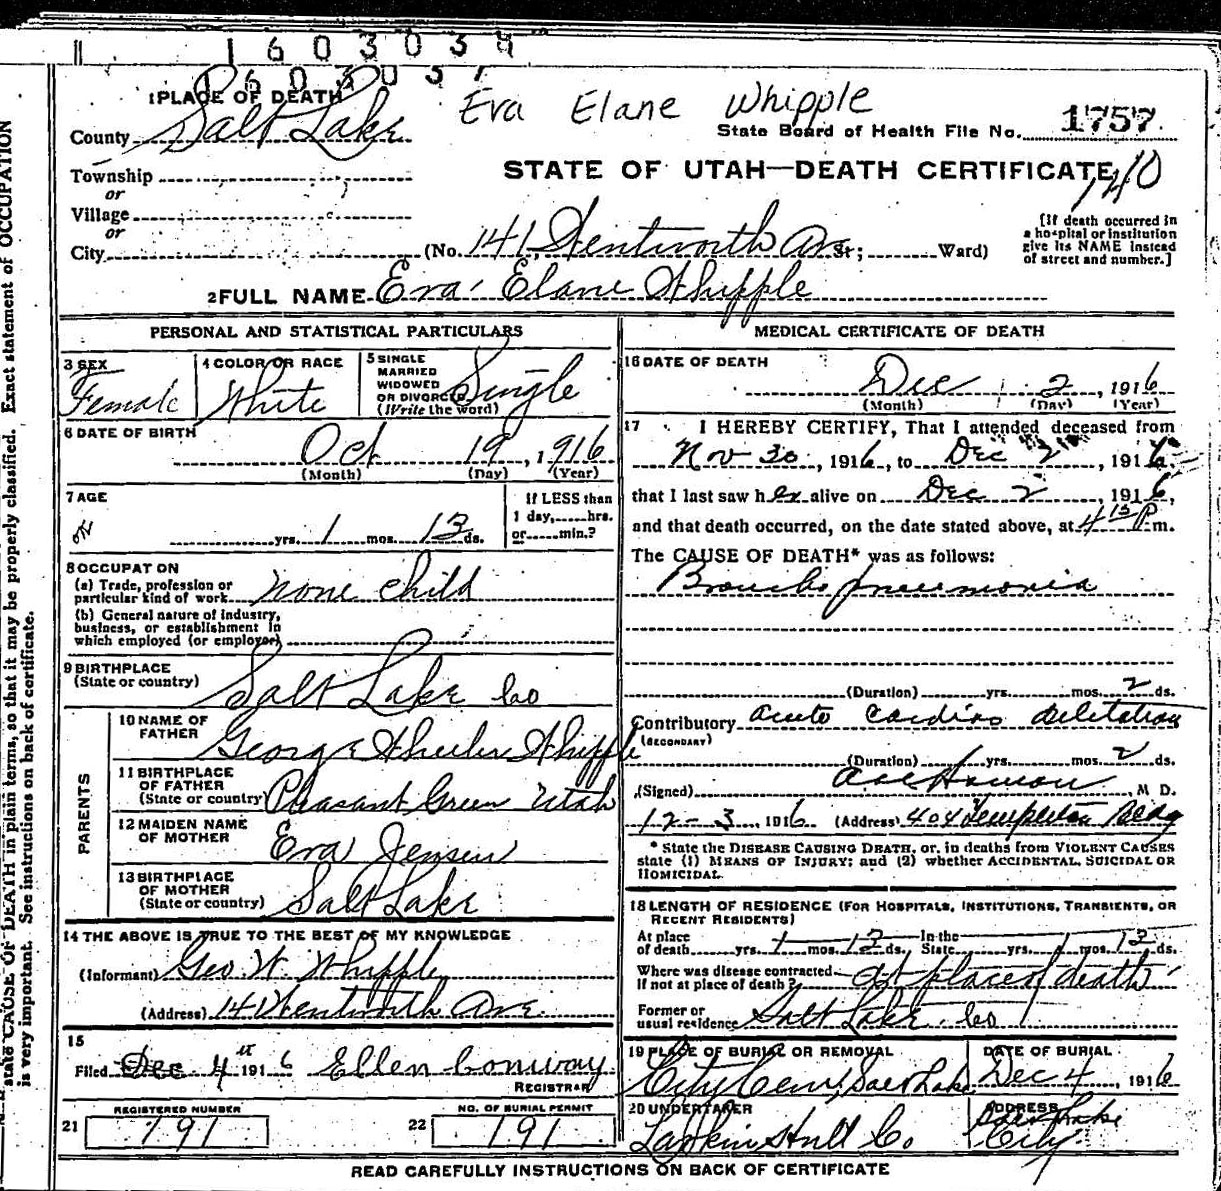 1603034
603037
1 PLACE OF DEATH
Eva Elane Whipple
County Salt Lake
State Board of Health File No. 1757
Township
STATE OF UTAH—DEATH CERTIFICATE
or
140
Village
or
City (No. 141, Wentworth Ave St; Ward)
[If death occurred in
a hospital or institution
give its NAME instead
of street and number.]
2 FULL NAME Eva Elane Whipple
PERSONAL AND STATISTICAL PARTICULARS
3 SEX
Female
4 COLOR OR RACE
White
5 SINGLE
MARRIED
WIDOWED
OR DIVORCED
(Write the word)
Single
6 DATE OF BIRTH
Oct 19, 1916
(Month) (Day) (Year)
7 AGE
yrs. 1 mos. 13 ds.
If LESS than
1 day, hrs.
or min.?
8 OCCUPATION
(a) Trade, profession or
particular kind of work none child
(b) General nature of industry,
business, or establishment in
which employed (or employer)
9 BIRTHPLACE
(State or country) Salt Lake Co
PARENTS
10 NAME OF
FATHER
George Wheeler Whipple
11 BIRTHPLACE
OF FATHER
(State or country) Pleasant Green Utah
12 MAIDEN NAME
OF MOTHER Eva Jensen
13 BIRTHPLACE
OF MOTHER
(State or country) Salt Lake
14 THE ABOVE IS TRUE TO THE BEST OF MY KNOWLEDGE
(Informant) Geo. W. Whipple
(Address) 141 Wentworth Ave.
15
Filed Dec 4th 1916 Ellen Conway
REGISTRAR
REGISTERED NUMBER
21 191
NO. OF BURIAL PERMIT
22 191
MEDICAL CERTIFICATE OF DEATH
16 DATE OF DEATH
Dec 2, 1916
(Month) (Day) (Year)
17 I HEREBY CERTIFY, That I attended deceased from
Nov 30, 1916, to Dec 2, 1916
that I last saw her alive on Dec 2, 1916,
and that death occurred, on the date stated above, at 4 15 P m.
The CAUSE OF DEATH* was as follows:
Broncho pneumonia
(Duration) yrs. mos. 2 ds.
Contributory acute cardiac dilitation
(SECONDARY)
(Duration) yrs. mos. 2 ds.
(Signed) M D.
12-3, 1916 (Address) 404 Templeton Bldg
* State the DISEASE CAUSING DEATH, or, in deaths from VIOLENT CAUSES
state (1) MEANS OF INJURY; and (2) whether ACCIDENTAL, SUICIDAL OR
HOMICIDAL.
18 LENGTH OF RESIDENCE (FOR HOSPITALS, INSTITUTIONS, TRANSIENTS, OR
RECENT RESIDENTS)
At place
of death yrs. 1 mos. 13 ds. In the
State yrs. 1 mos. 13 ds.
Where was disease contracted
If not at place of death? at place of death
Former or
usual residence Salt Lake Co
19 PLACE OF BURIAL OR REMOVAL
City Cem, Salt Lake
DATE OF BURIAL
Dec 4, 1916
20 UNDERTAKER
Larkin Hull Co
ADDRESS
Salt Lake
City
READ CAREFULLY INSTRUCTIONS ON BACK OF CERTIFICATE
state CAUSE OF DEATH in plain terms, so that it may be properly classified. Exact statement of OCCUPATION
is very important. See instructions on back of certificate.